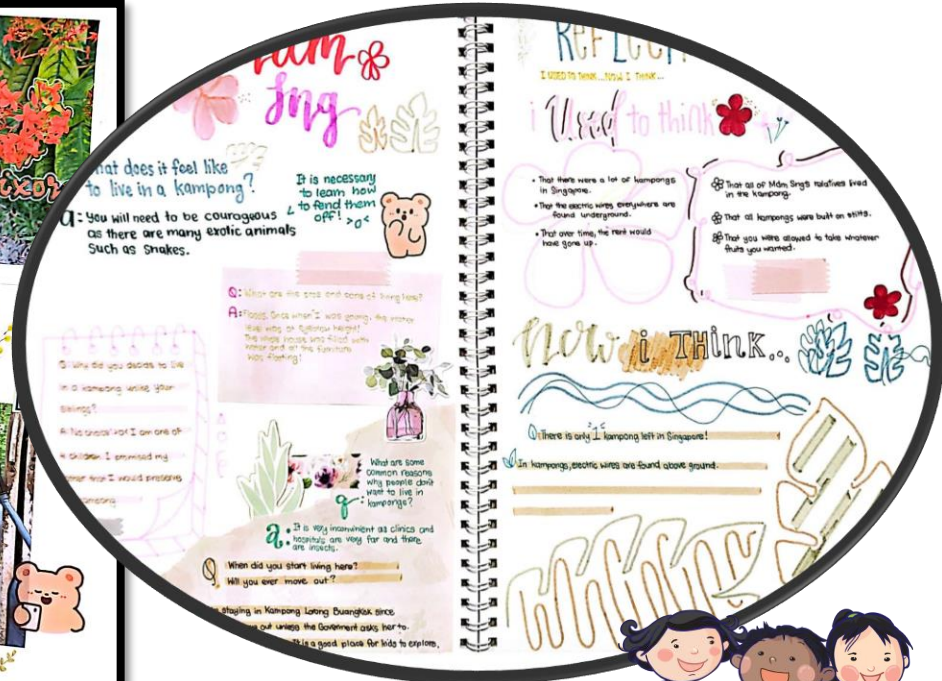 Ixor
Mdm
Sng
What does it feel like
to live in a kampong?
a: You will need to be courageous
as there are many exotic animals
such as snakes.
It is necessary
to learn how
to fend them
off! >o<
Q: What are the pros and cons of living here?
A: Floods. Once when I was young, the water
level was at eyebrow height!
The whole house was filled with
water and all the furniture
was floating!
Q: Why did you decide to live
in a kampong unlike your
siblings?
A: No choice! For I am one of
4 children. I promised my
father that I would preserve
kampong
What are some
common reasons
why people don't
want to live in
kampongs?
q:
a: It is very inconvinient as clinics and
hospitals are very far and there
are insects.
Q When did you start living here?
Will you ever move out?
staying in Kampong Lorong Buangkok since
out unless the Government asks her to.
It is a good place for kids to explore.
REFLECT
I USED TO THINK...NOW I THINK...
i Used to think
• That there were a lot of kampongs
in Singapore.
• That the electric wires everywhere are
found underground.
• That over time, the rent would
have gone up.
That all of Mdm Sng's relatives lived
in the kampong.
That all kampongs were built on stilts.
That you were allowed to take whatever
fruits you wanted.
Now i THINK...
There is only 1 kampong left in Singapore!
In kampongs, electric wires are found above ground.